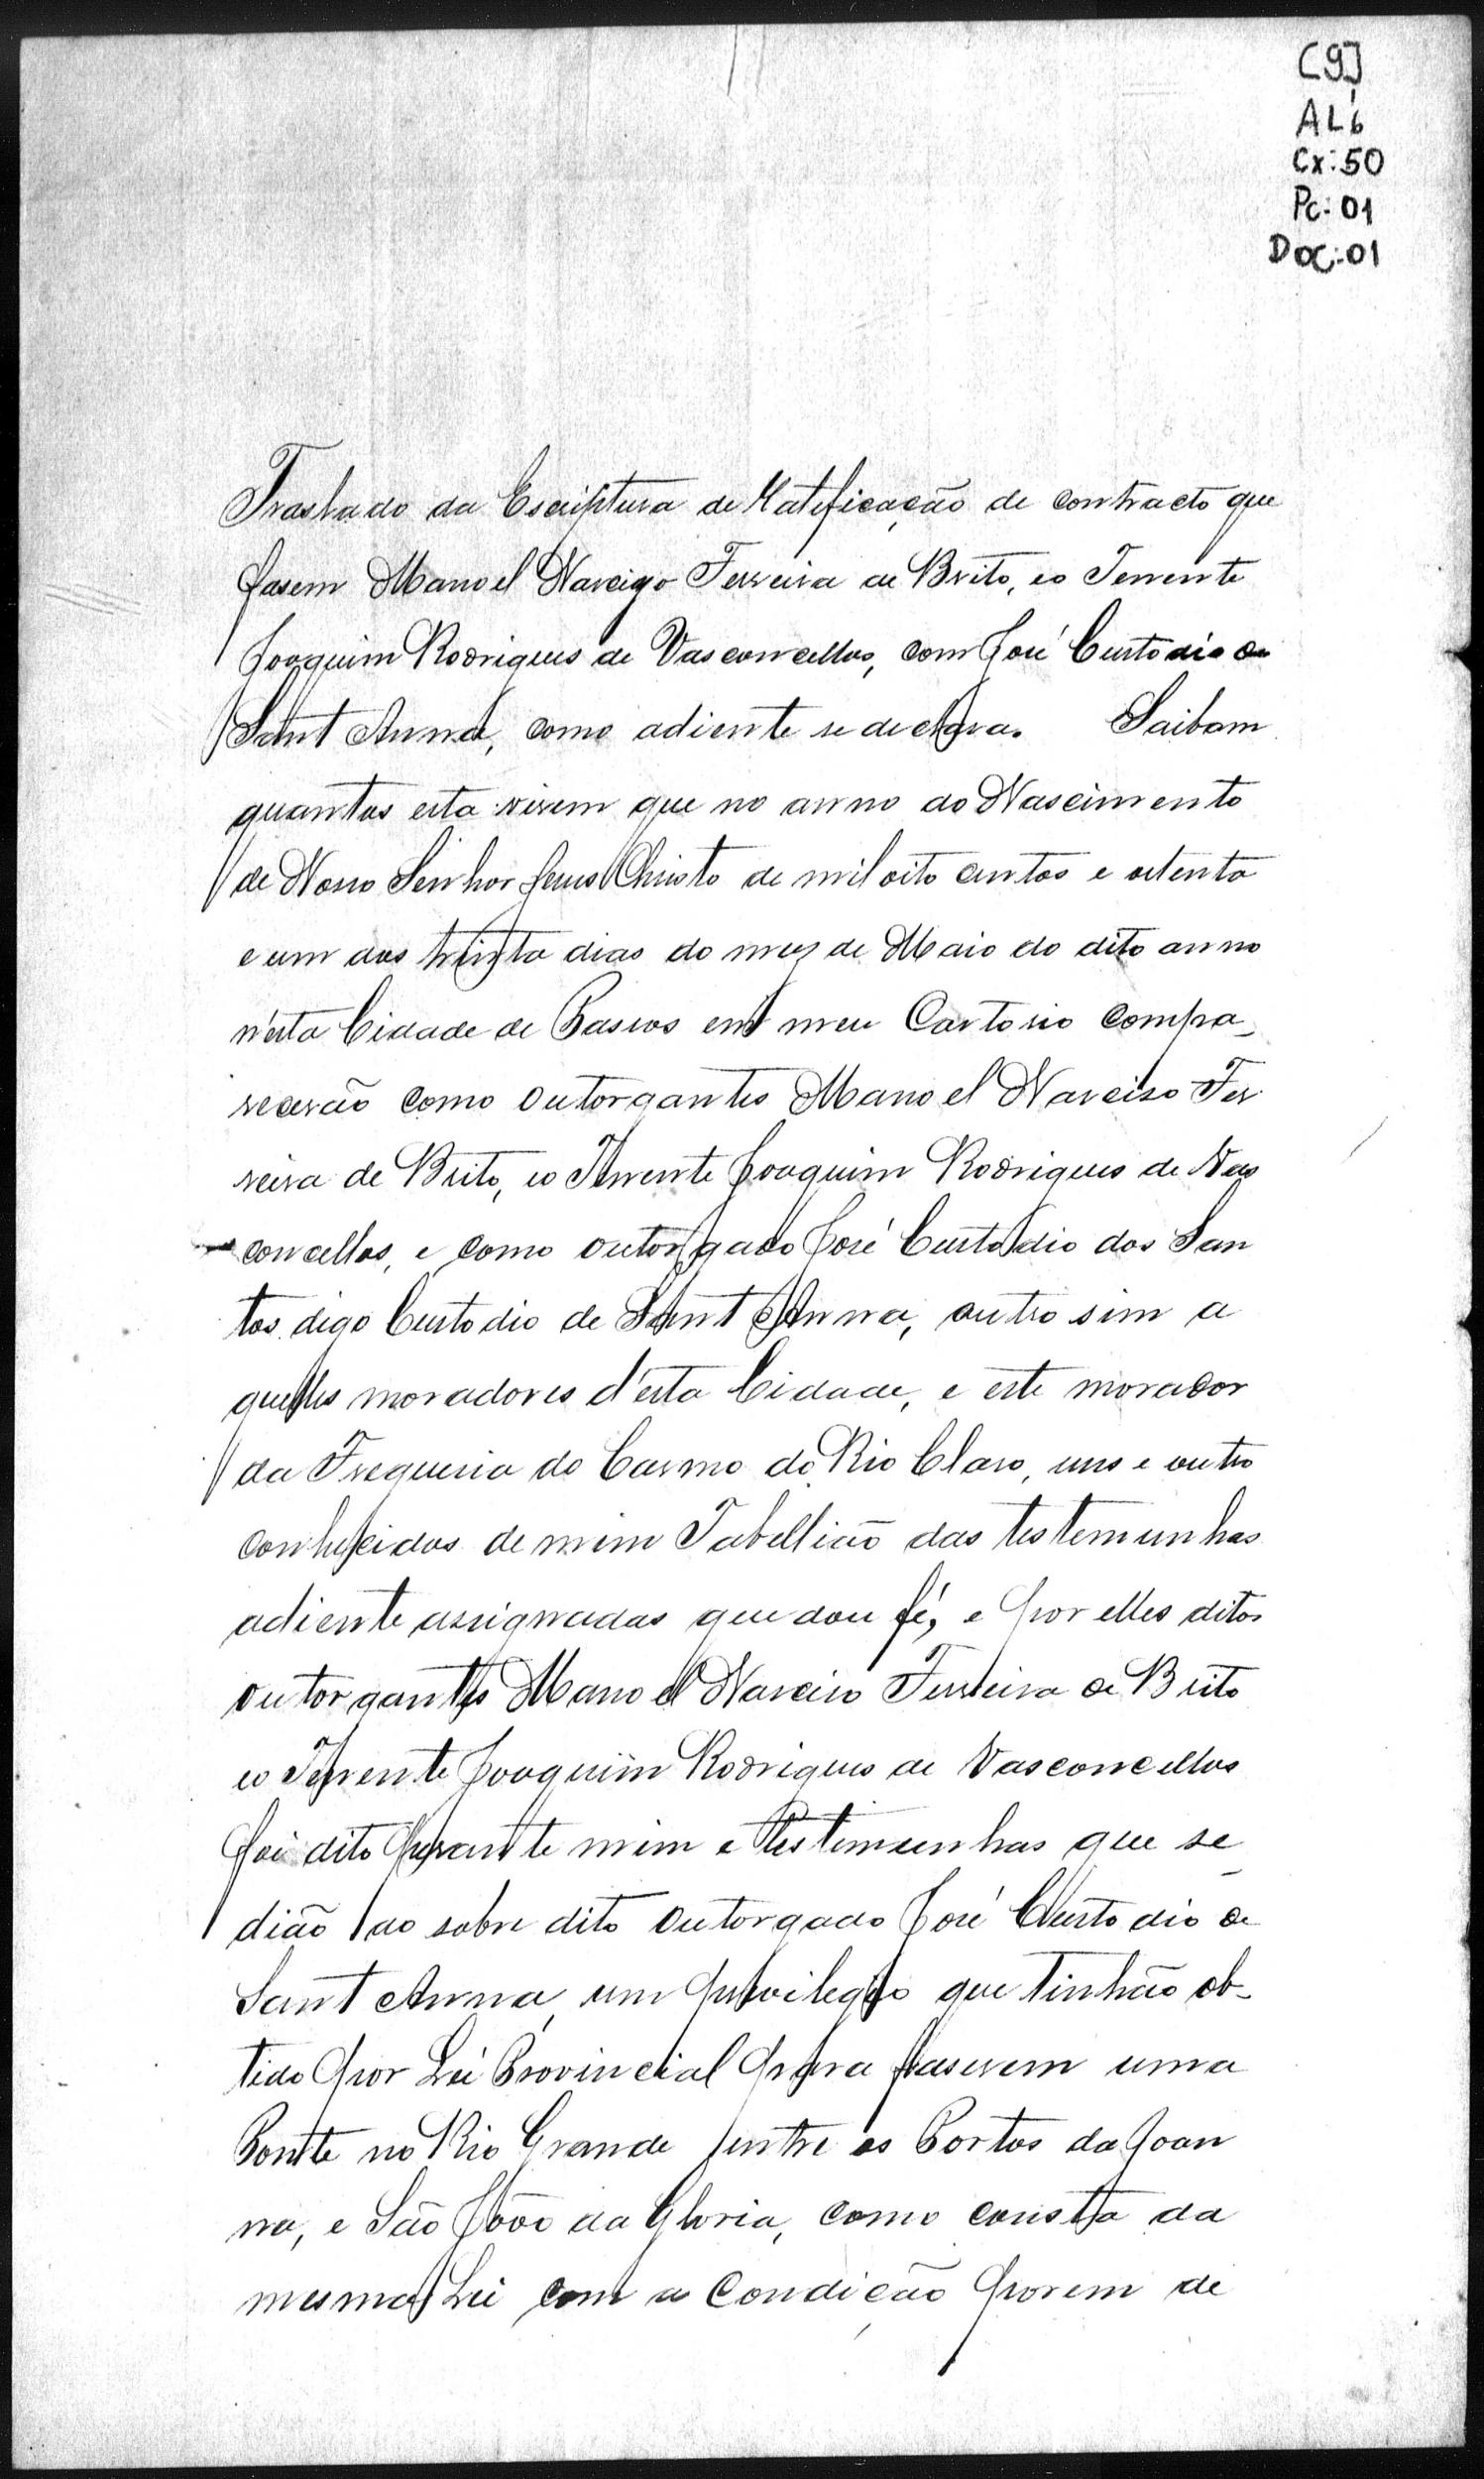 [9]
AL6
Cx: 50
Pc: 01
Doc: 01
Traslado da Escriptura de Ratificação de contracto que
fasem Manoel Narcizo Ferreira de Brito, eo Tenente
Joaquim Rodrigues de Vasconcellos, com José Custodio de
Sant Anna, como adiente se declara. Saibam
quantos esta virem que no anno do Nascimento
de Nosso Senhor Jesus Christo de mil oito centos e oitenta
e um aos trinta dias do mez de Maio do dito anno
n'esta Cidade de Passos em meu Cartorio compa_
recerão como outorgantes Manoel Narciso Fer
reira de Brito, eo Tenente Joaquim Rodrigues de Vas
concellos, e como outorgado José Custodio dos San
tos digo Custodio de Sant Anna, outro sim a
quelles moradores d'esta Cidade, e este morador
da Freguesia do Carmo do Rio Claro, uns e outro
conhecidos de mim Tabellião das testemunhas
adiente assignadas que dou fé, e por elles ditos
outorgantes Manoel Narciso Ferreira de Brito
eo Tenente Joaquim Rodrigues de Vasconcellos
foi dito perante mim e testimunhas que se
dião ao sobre dito outorgado José Custodio de
Sant Anna, um privilegio que tinhão ob_
tido por Lei Provincial para faserem uma
Ponte no Rio Grande entre os Portos da Joan
na, e São João da Gloria, como consta da
mesma Lei com a condição porem de